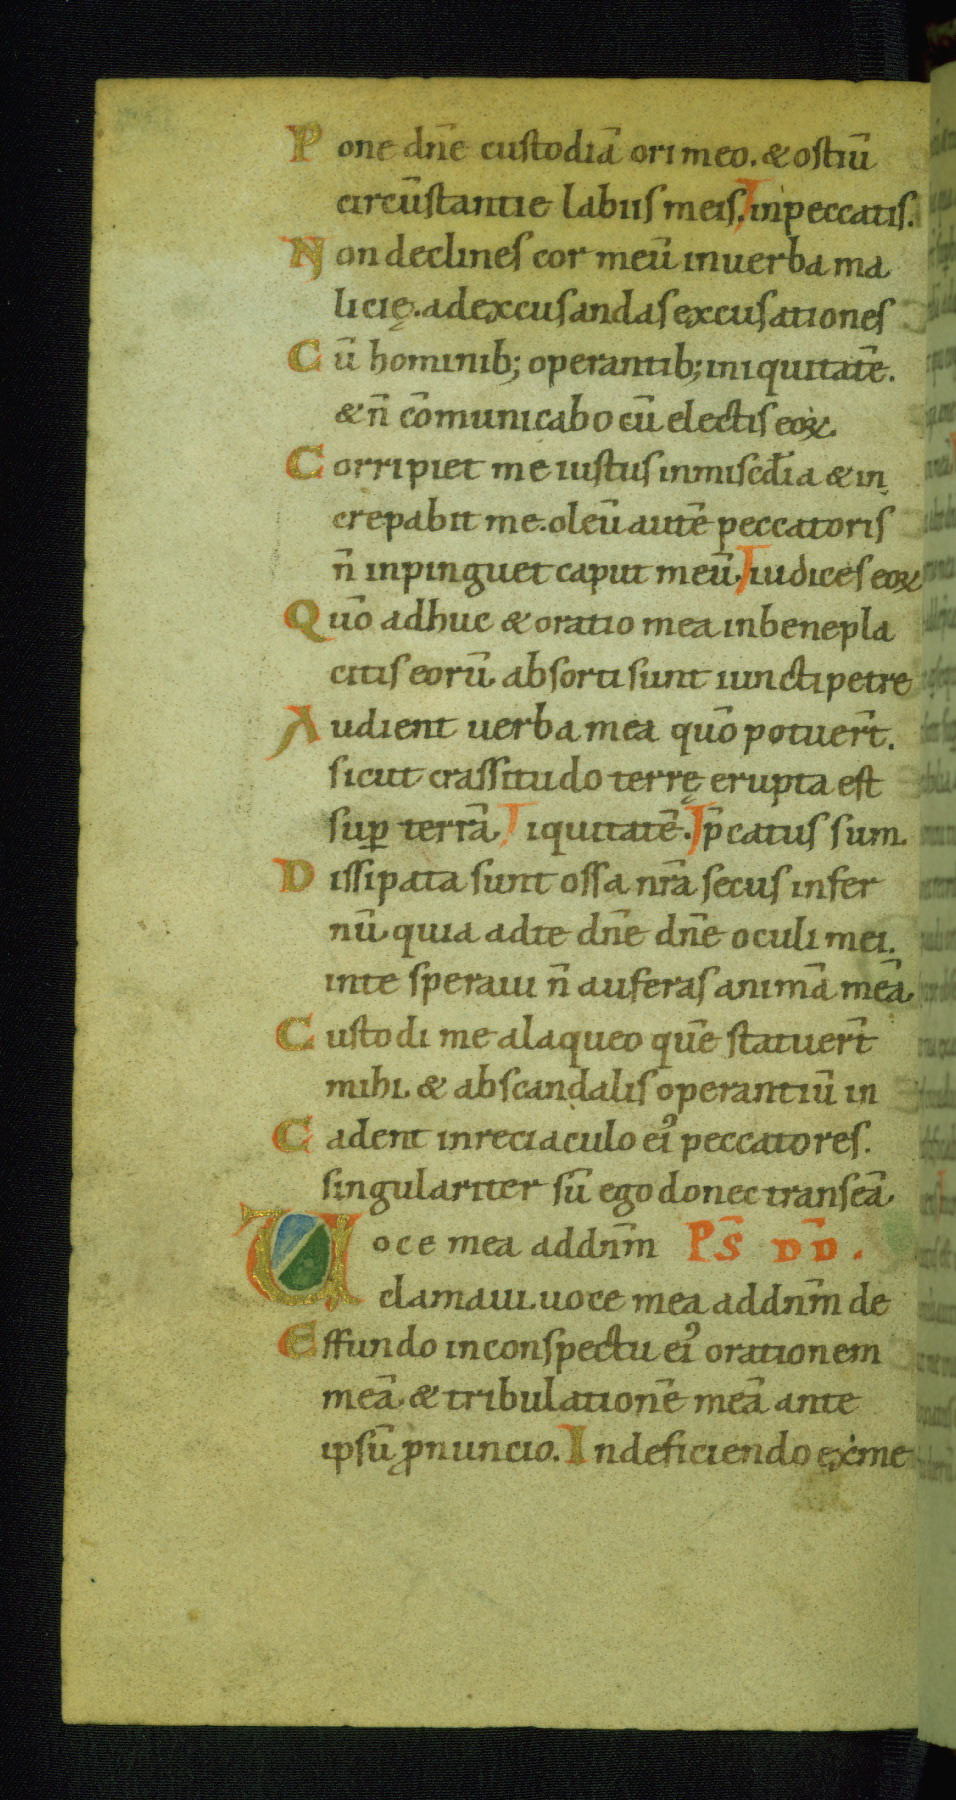 Pone dnē custodiā ori meo. & ostiū
circūstantie labiis meis. in peccatis.
Non declines cor meū in uerba ma
licię. ad excusandas excusationes
Cū hominib; operantib; iniquitatē.
& n̄ cōmunicabo cū electis eoꝝ.
Corripiet me iustus in misc̄dia & in
crepabit me. oleū autē peccatoris
n̄ inpinguet caput meū. iudices eoꝝ
Quō adhuc & oratio mea in benepla
citis eorū. absorti sunt iuncti petre
Audient uerba mea quō potuer̄t.
sicut crassitudo terrę erupta est
suꝑ terrā. iquitatē. p̄catus sum.
Dissipata sunt ossa nr̄a secus infer
nū. quia ad te dnē dnē oculi mei.
in te speraui n̄ auferas animā meā.
Custodi me a laqueo quē statuer̄t
mihi. & ab scandalis operantiū in
Cadent in reciaculo ei᾽ peccatores.
singulariter sū ego donec transeā.
Uoce mea ad dnm̄ PS̄ DD̄.
clamaui. uoce mea ad dnm̄ de
Effundo in conspectu ei᾽ orationem
meā. & tribulationē meā ante
ipsū ꝓnuncio. In deficiendo ex me